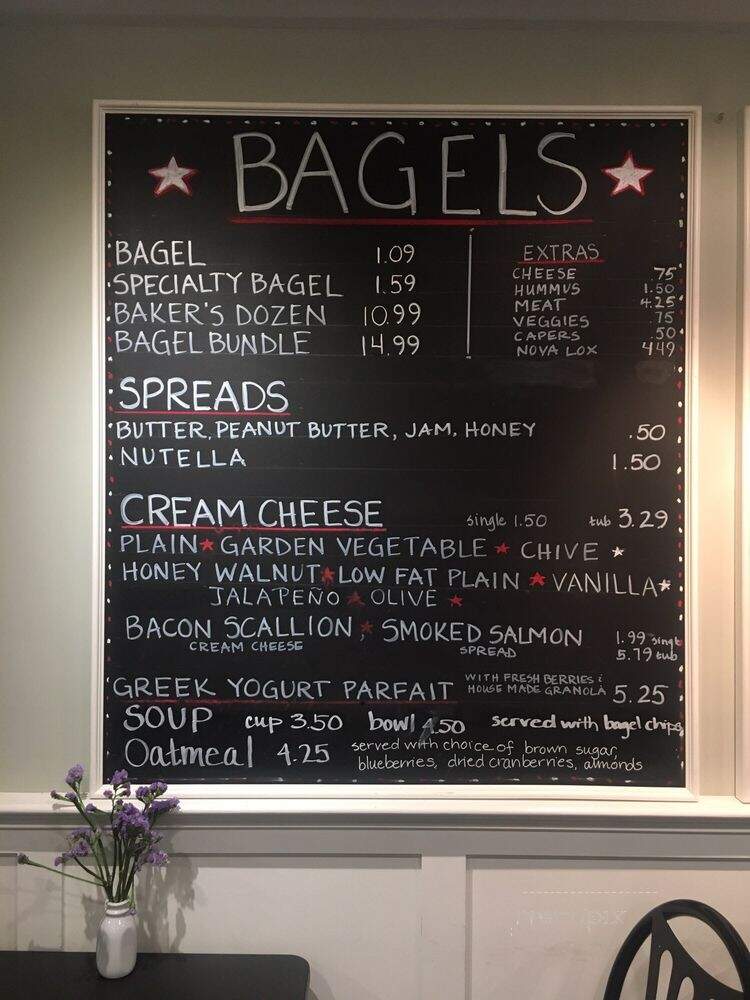 BAGELS
BAGEL 1.09
SPECIALTY BAGEL 1.59
BAKER'S DOZEN 10.99
BAGEL BUNDLE 14.99
EXTRAS
CHEESE .75
HUMMUS 1.50
MEAT 4.25
VEGGIES .75
CAPERS .50
NOVA LOX 4.49
SPREADS
BUTTER, PEANUT BUTTER, JAM, HONEY .50
NUTELLA 1.50
CREAM CHEESE single 1.50 tub 3.29
PLAIN ★ GARDEN VEGETABLE ★ CHIVE ★
HONEY WALNUT ★ LOW FAT PLAIN ★ VANILLA ★
JALAPEÑO ★ OLIVE ★
BACON SCALLION ★ SMOKED SALMON 1.99 single
CREAM CHEESE SPREAD 5.79 tub
GREEK YOGURT PARFAIT WITH FRESH BERRIES &
HOUSE MADE GRANOLA 5.25
SOUP cup 3.50 bowl 4.50 served with bagel chips
Oatmeal 4.25 served with choice of brown sugar,
blueberries, dried cranberries, almonds